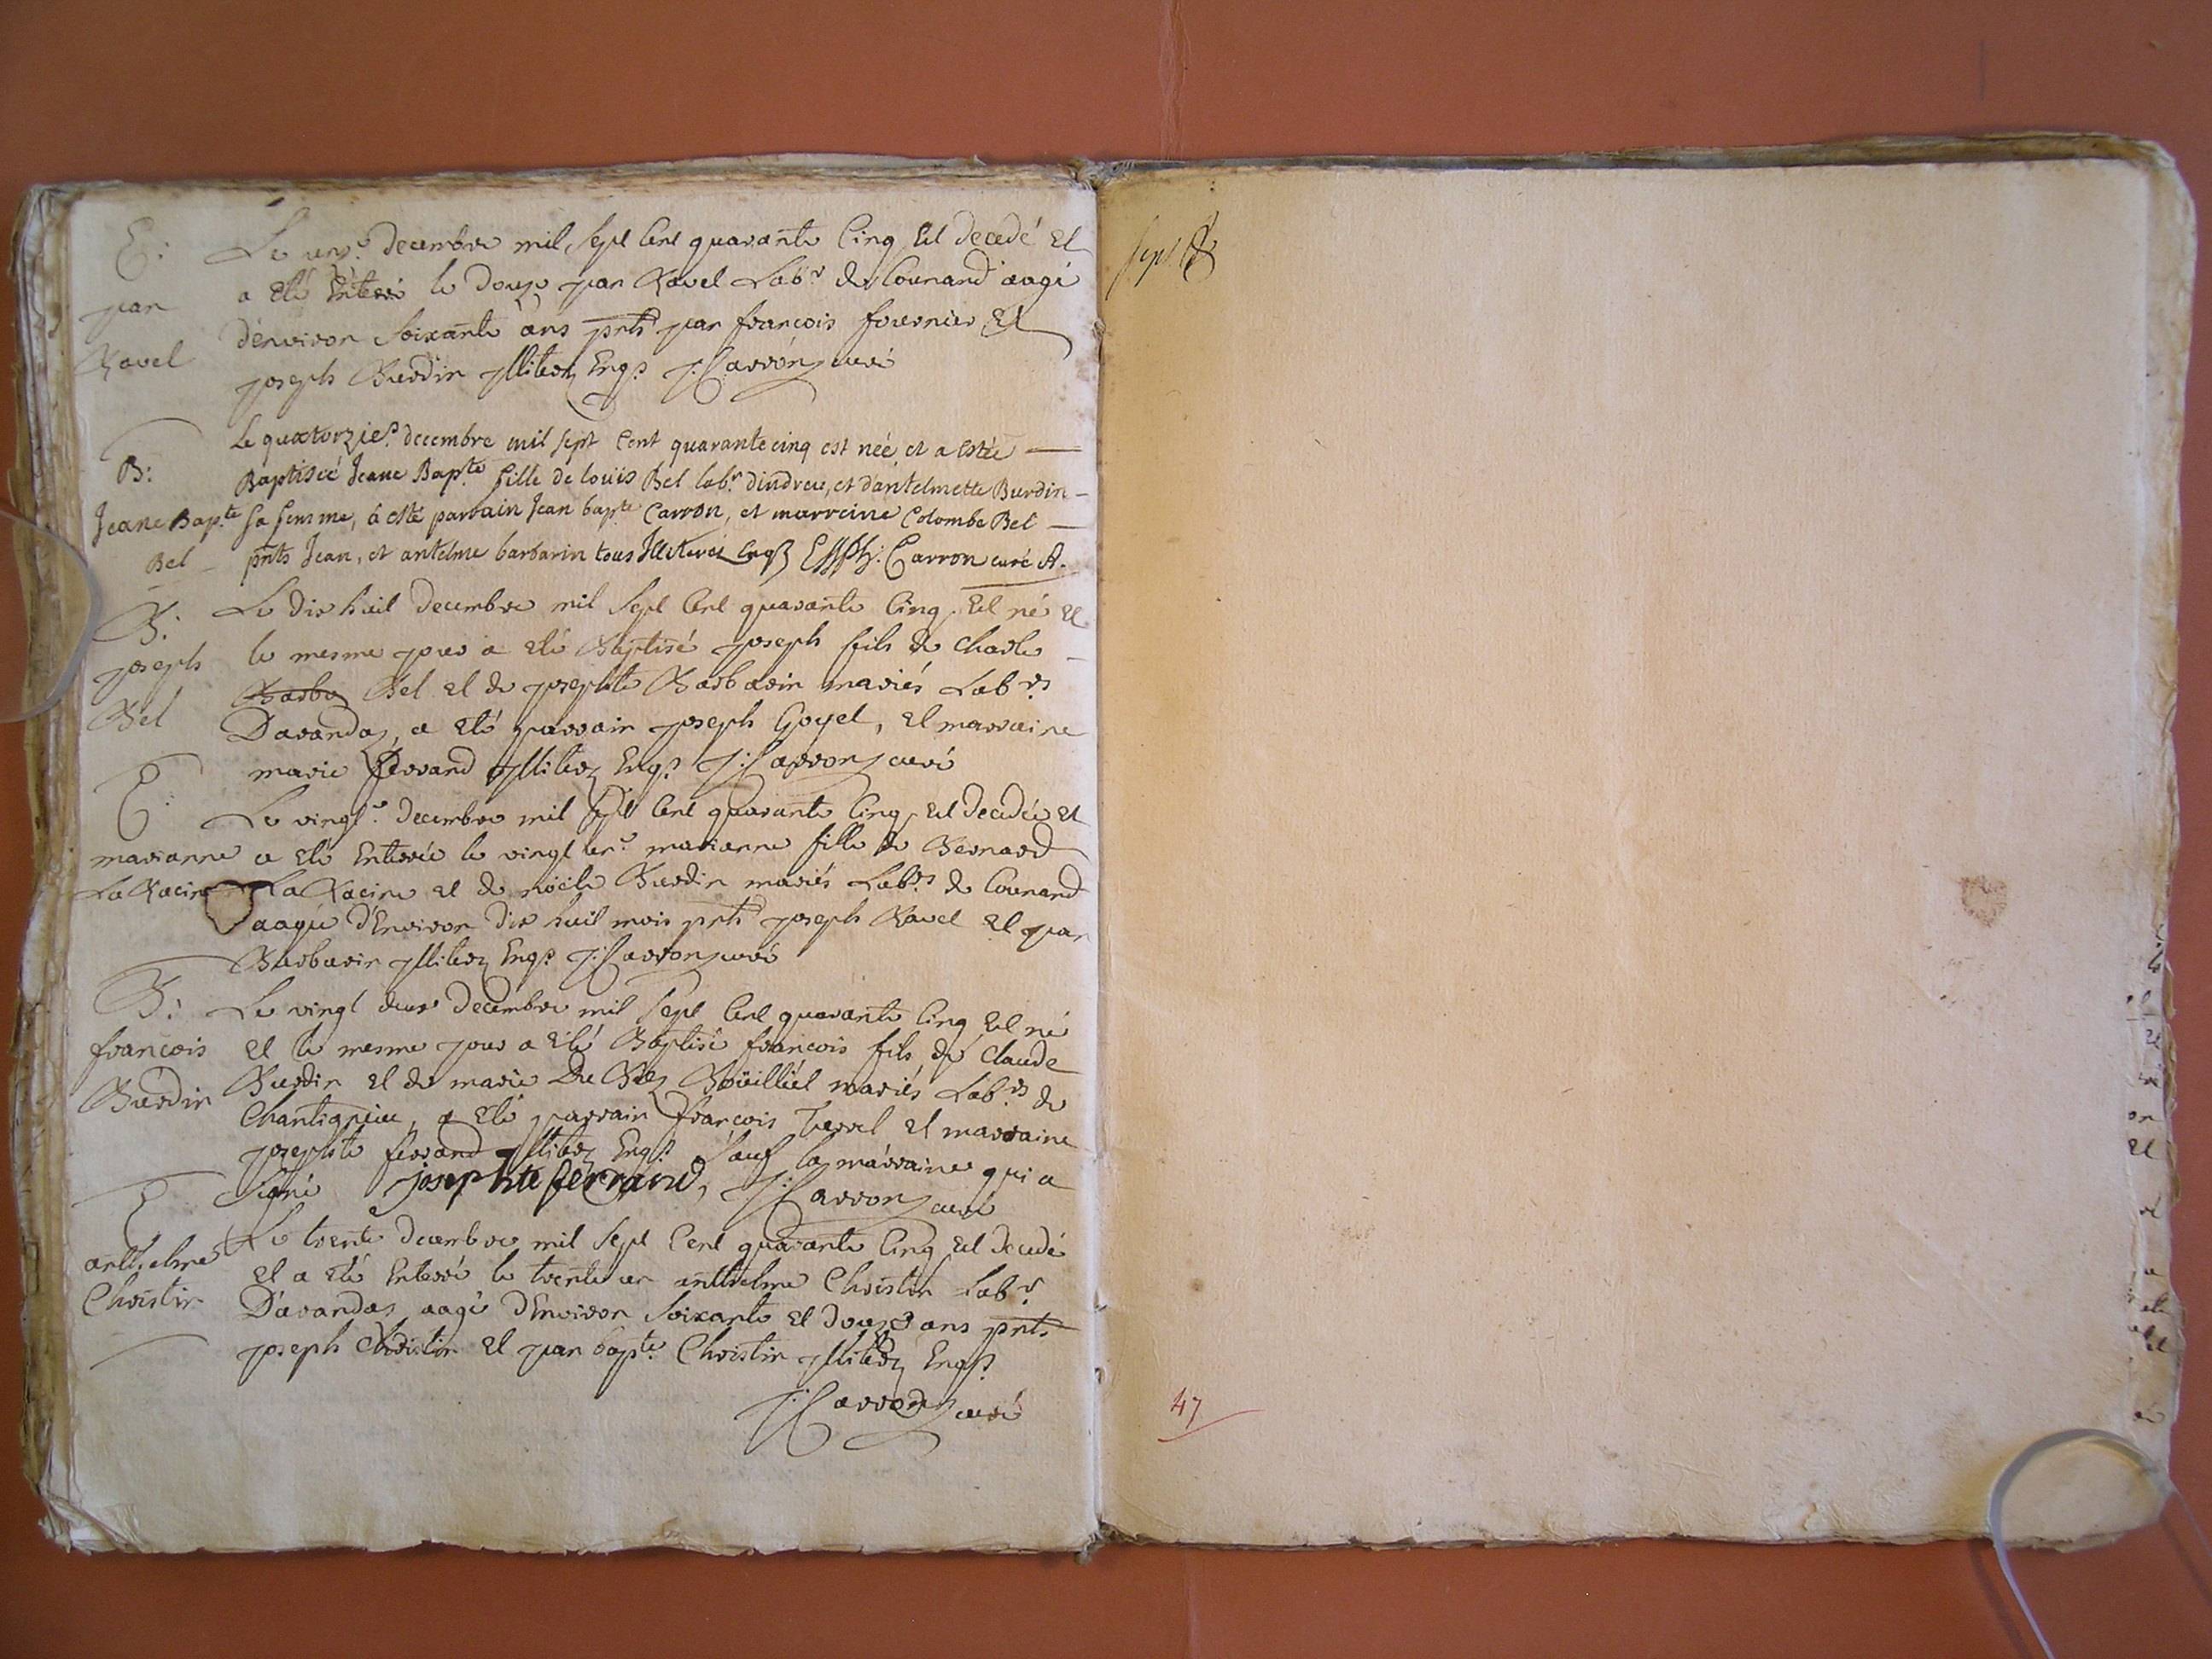 E: Le unz.e decembre mil sept Cent quarante Cinq Est decedé Et
jean a Eté Enterré le douze jean Ravel Lab.r de Counand aagé
Ravel d'environ soixante ans pnts jean françois fournier Et
joseph Burdin jlliterz Enqs J: Carron curé
Le quatorzie.e decembre mil sept Cent quarante cinq est née et a Estée
B: Baptisée Jeane Bap.te fille de loüis Bel lab.r dindrieu, et d'antelmette Burdin
Jeane Bap.te sa femme, á esté parrain Jean bap.te Carron, et marreine Colombe Bel
Bel pnts Jean, et antelme barbarin tous Illiterés Enqs Carron curé A.
B: Le dix huit decembre mil sept Cent quarante Cinq Est né Et
joseph le mesme jour a Eté Baptisé joseph fils de Charle
Bel Barba Bel et de josephte Barbarin mariés Lab.rs
Davandaz, a Eté parrain joseph Goyet, Et marraine
marie ferrand jlliterz Enqs J: Carron curé
E: Le vingt.e decembre mil sept Cent quarante Cinq Est decedée Et
marianne a Eté Enterrée le vingt un.e marianne fille de Bernard
La Racine La Racine et de Burdin mariés Lab.rs de Counand
aagée d'Environ dix huit mois pnts joseph Ravel Et jean
Barbarin jlliterz Enqs J: Carron curé
B: Le vingt deux decembre mil sept Cent quarante Cinq Est né
françois Et le mesme jour a Eté Baptisé françois fils de Claude
Burdin Burdin et de marie Du Bez Boüilliet mariés Lab.rs de
Chantignieu, a Eté parrain françois Et marraine
josephte ferrand jlliterz Enqs sauf la marraine qui a
signé josephte ferrand, J: Carron curé
E Le trente decembre mil sept Cent quarante Cinq Est decedé
anthelme Et a Eté Enterré le trente un anthelme Christin Lab.r
Christin D'avandaz aagé d'Environ soixante Et douze ans pnts
joseph Christin Et jean bapt.e Christin jlliterz Enqs
J: Carron curé
47